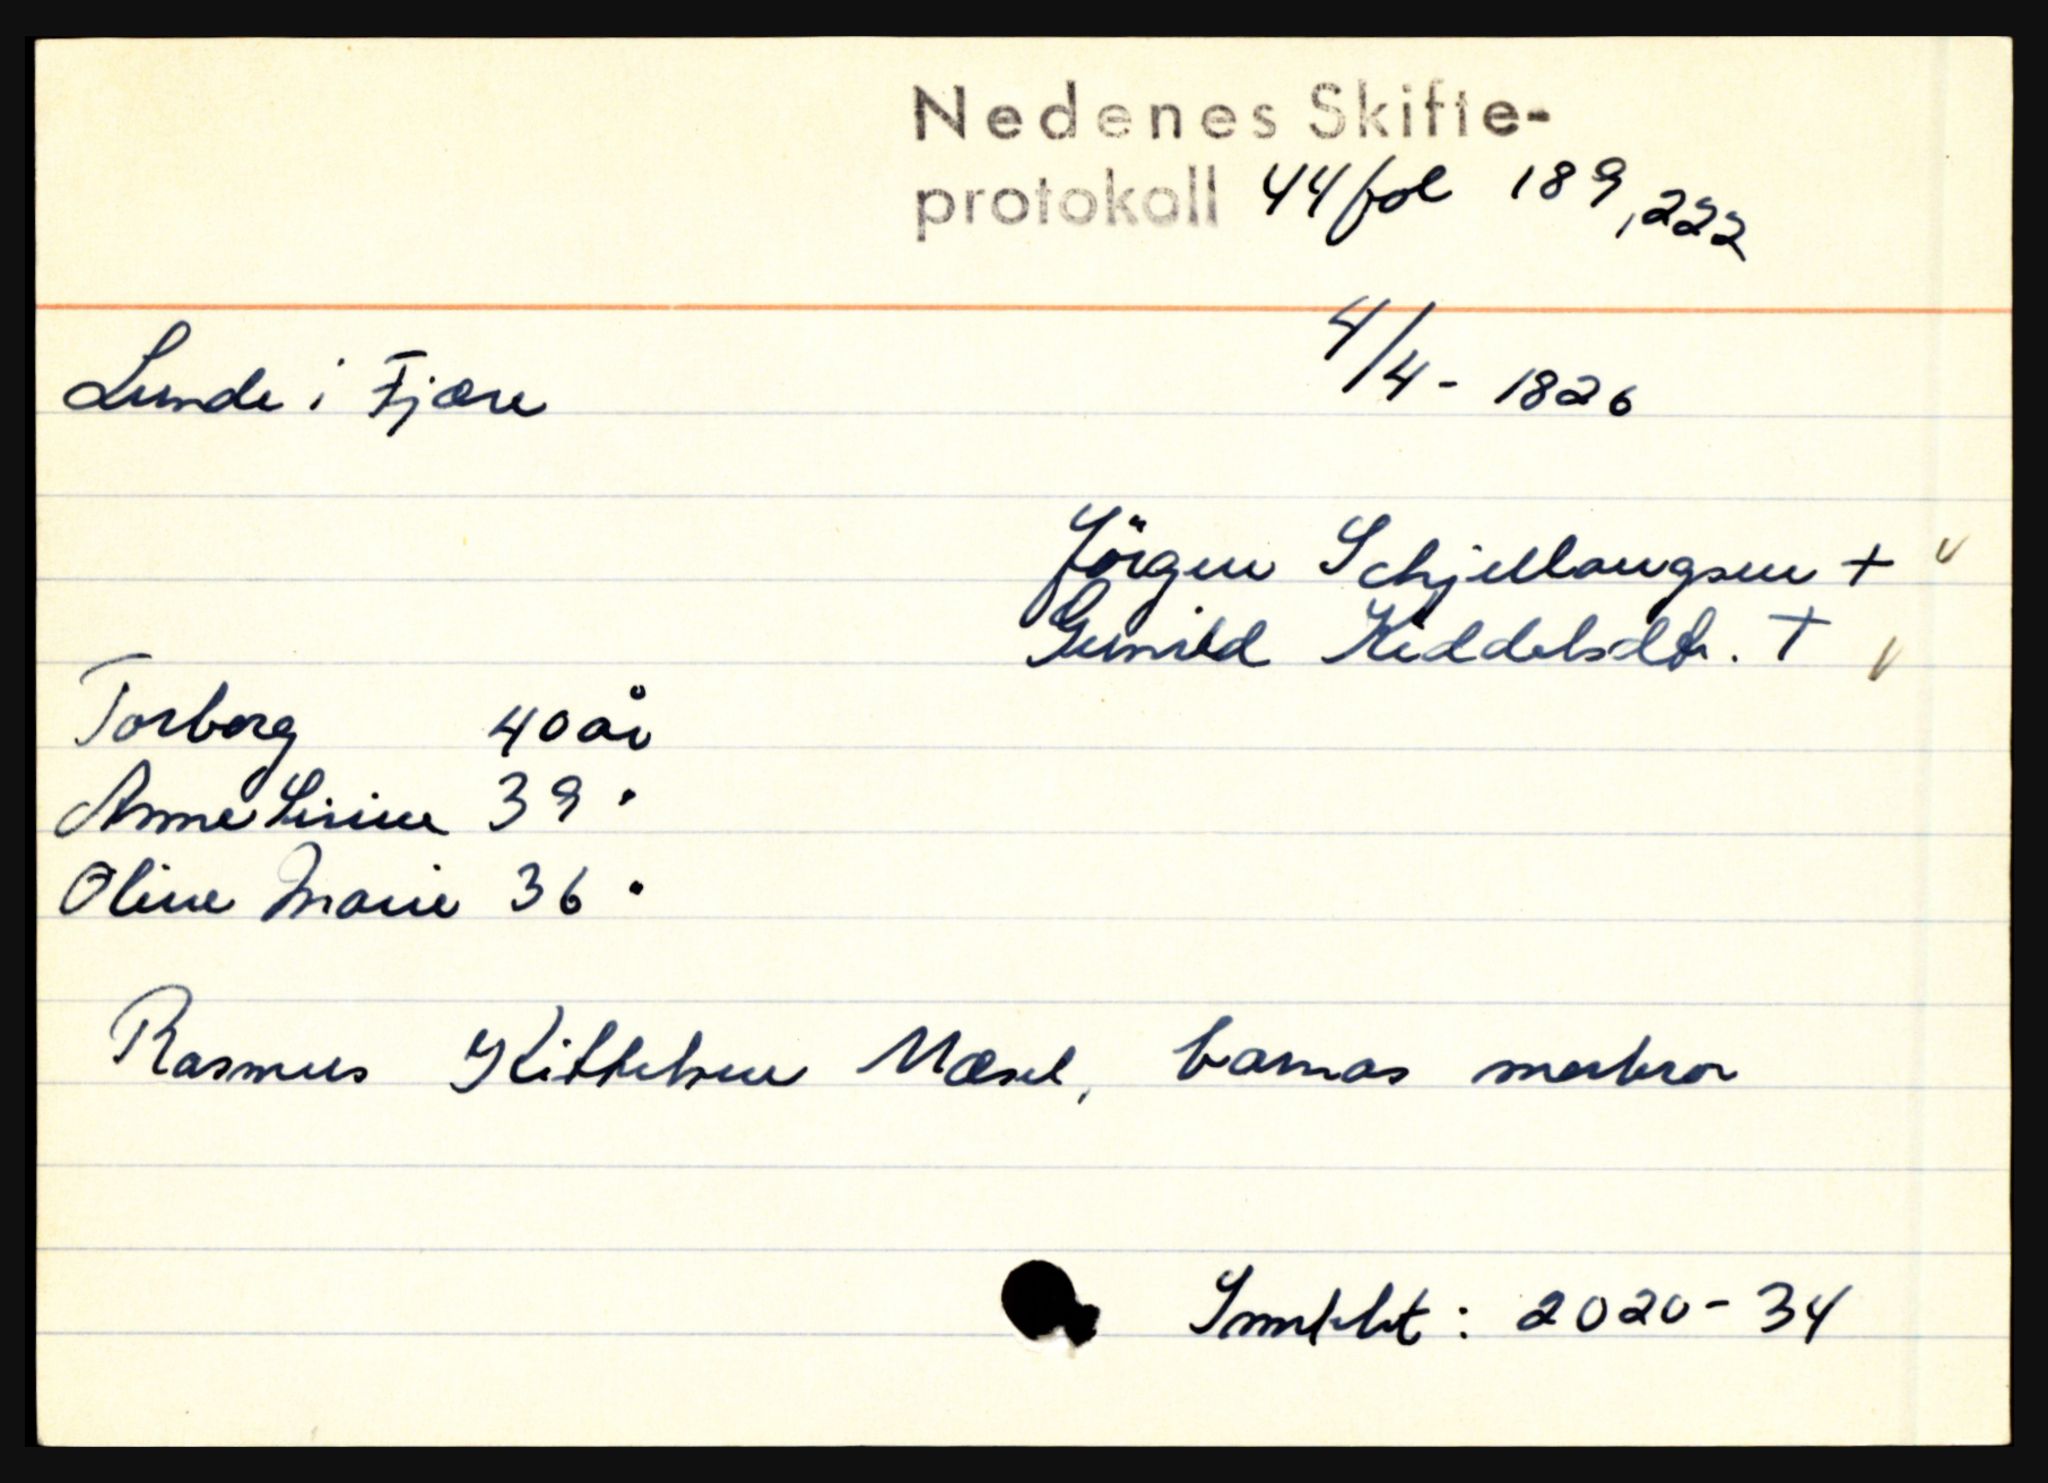 Nedenes Skifte-
protokoll 44 fol 189, 222
Lunde i Fjære
4/4 - 1826
Jörgen Schjellaugsen +
Gunild Keddelsdtr. +
Torborg 40 år
Anne Sirine 39 "
Oline Marie 36 "
Rasmus Kittelsen Mæsel, barnas morbror
: 2020 - 34